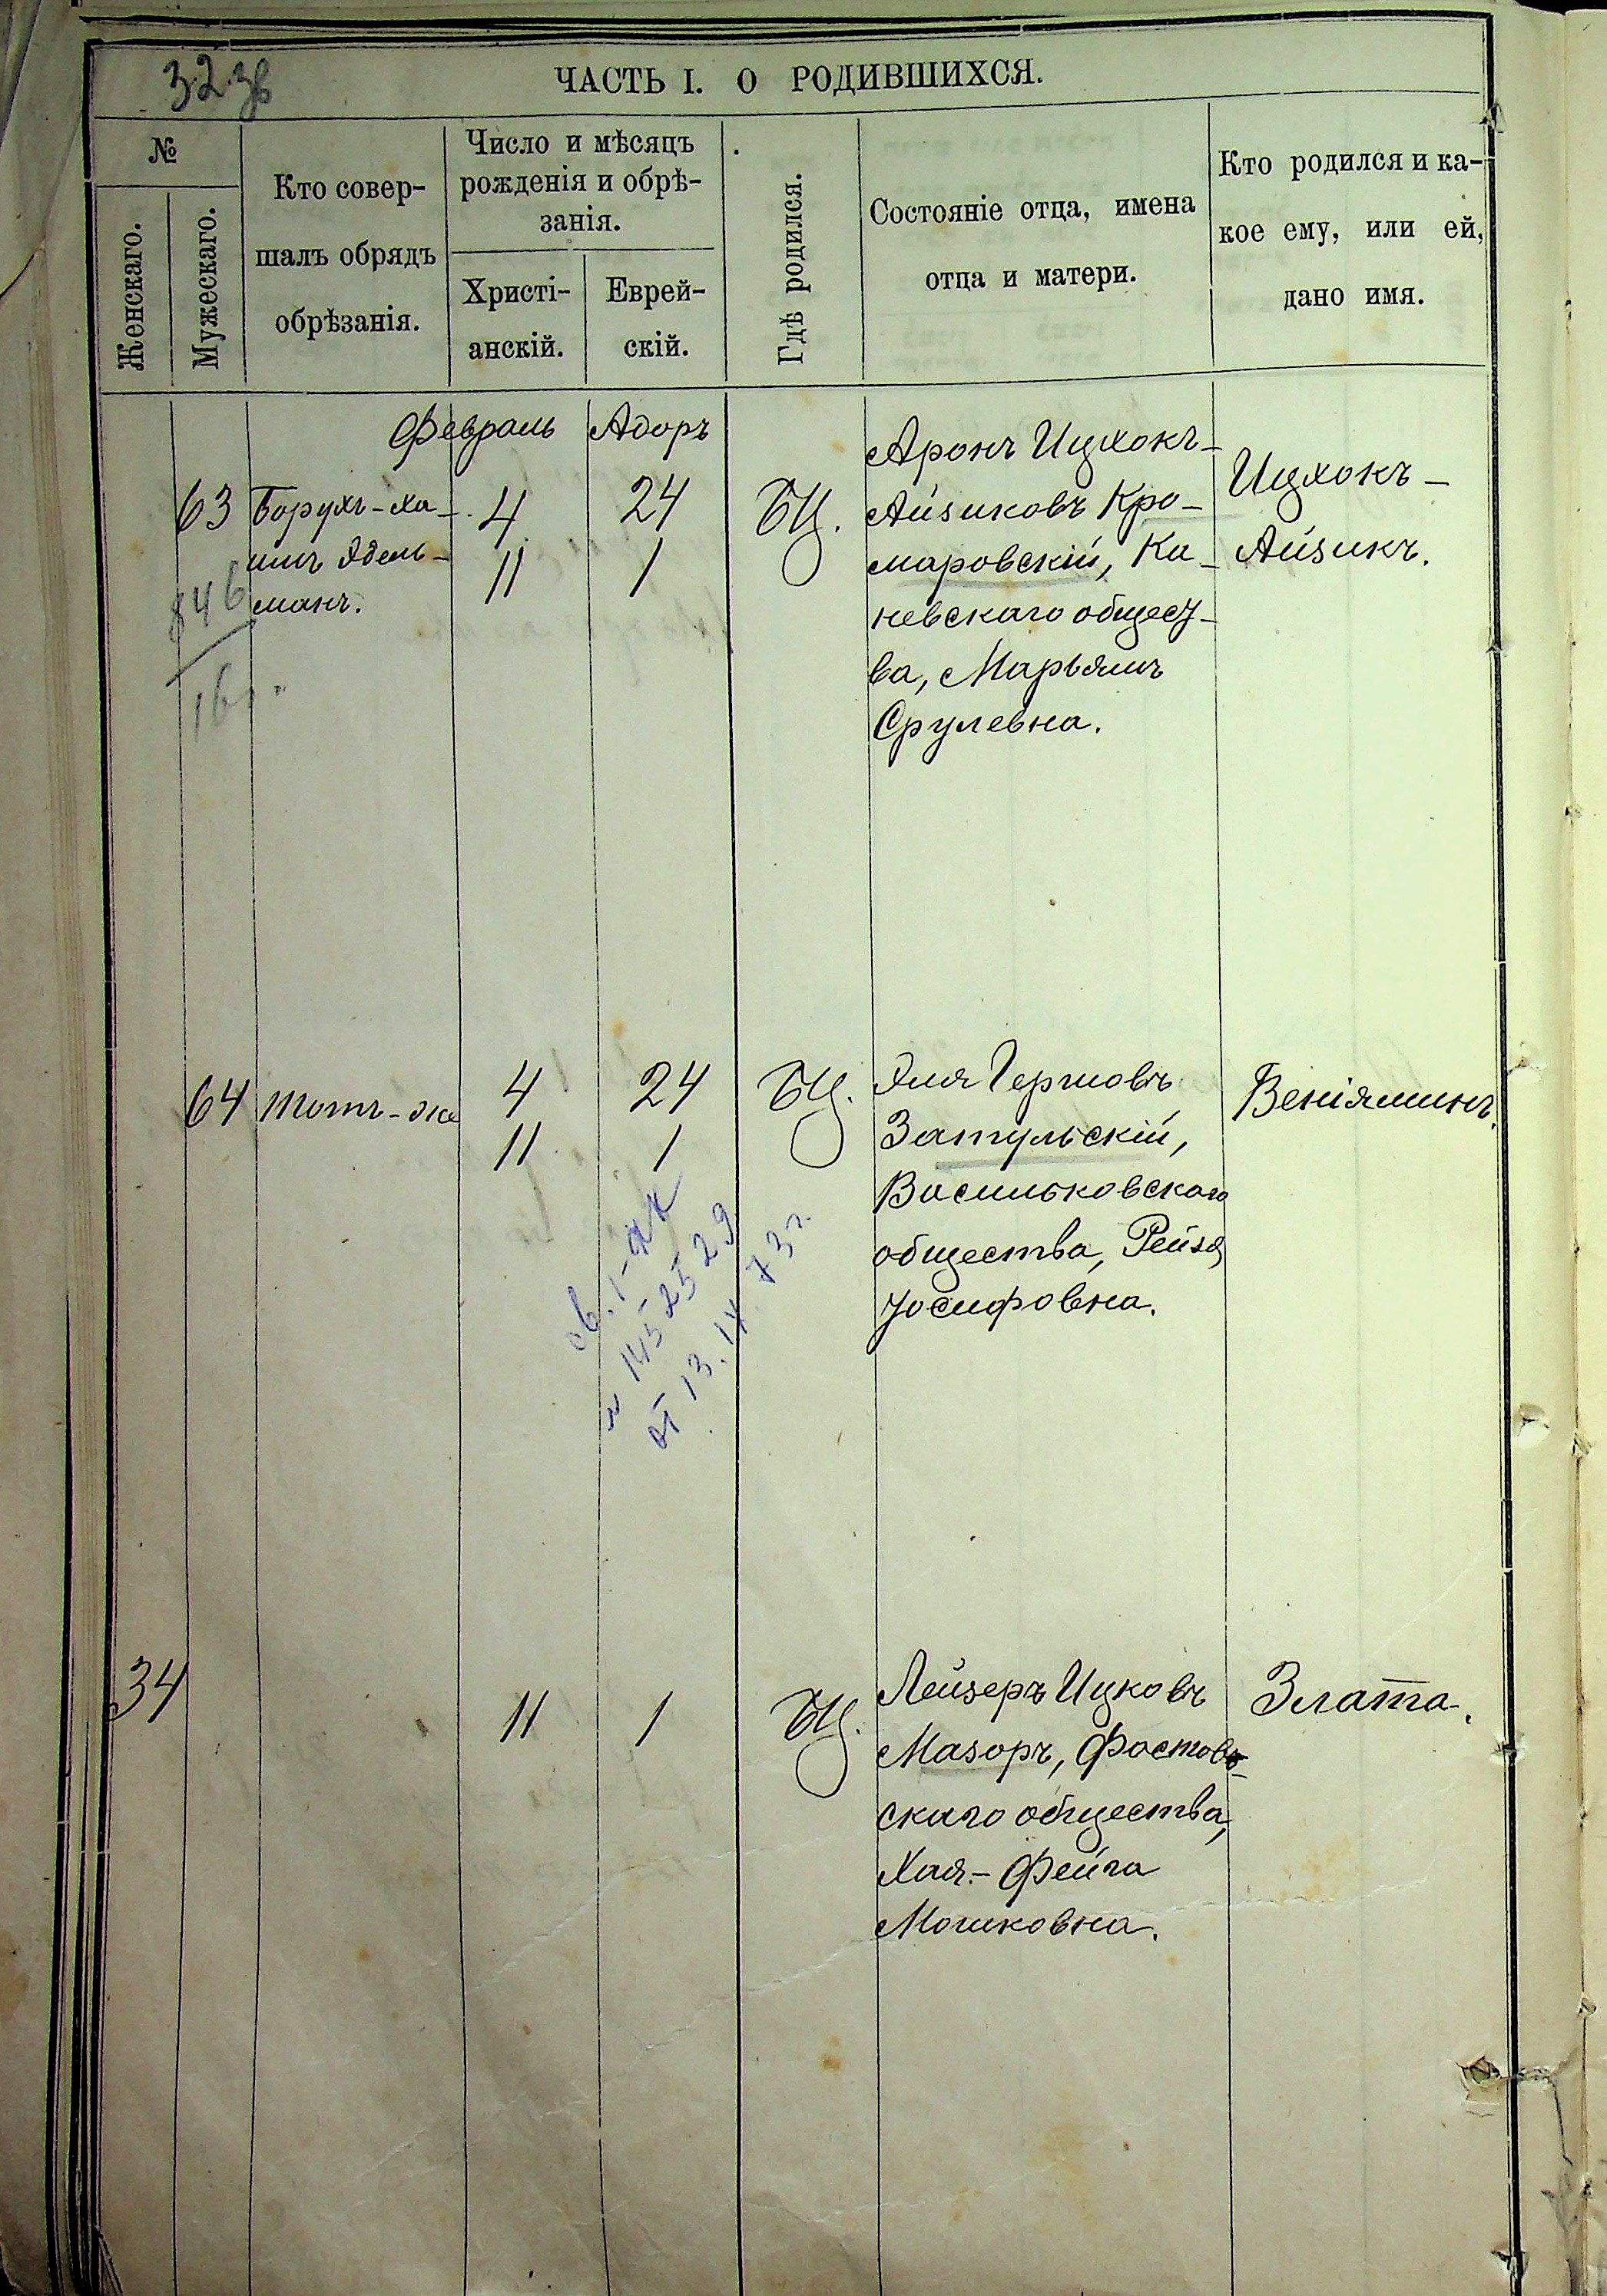 32 зв
ЧАСТЬ I. О РОДИВШИХСЯ.
№
Женскаго.
Мужескаго.
Кто совер-
шалъ обрядъ
обрѣзанія.
Число и мѣсяцъ
рожденія и обрѣ-
занія.
Христі-
анскій.
Еврей-
скій.
Гдѣ родился.
Состояніе отца, имена
отца и матери.
Кто родился и ка-
кое ему, или ей,
дано имя.
Февраль Адоръ
63
Борухъ-Ха-
имъ Эдель-
манъ.
846
16 г.
4 24
11 1
БЦ.
Аронъ Ицхокъ-
Айзиковъ Кро-
маровскій, Ка-
невскаго общест-
ва, Марьямъ
Срулевна.
Ицхокъ-
Айзикъ.
64
тотъ-же
4 24
11 1
БЦ.
Эля Гершовъ
Затульскій,
Васильковскаго
общества, Рейзя
Іосифовна.
Веніяминъ.
от 13. IX 73 г.
34
11 1
БЦ.
Лейзеръ Ицковъ
Мазоръ, Фастов-
скаго общества,
Хая-Фейга
Мошковна.
Злата.